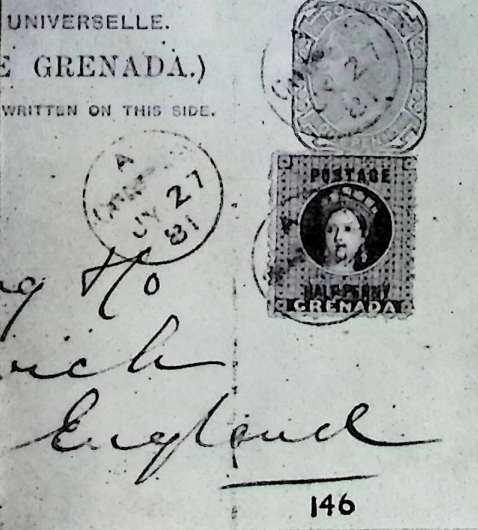 UNIVERSELLE.
E GRENADA.)
WRITTEN ON THIS SIDE.
A
JY 27
81
JY 27
81
POSTAGE
HALF-PENNY
GRENADA
g Ho
wich
England
146